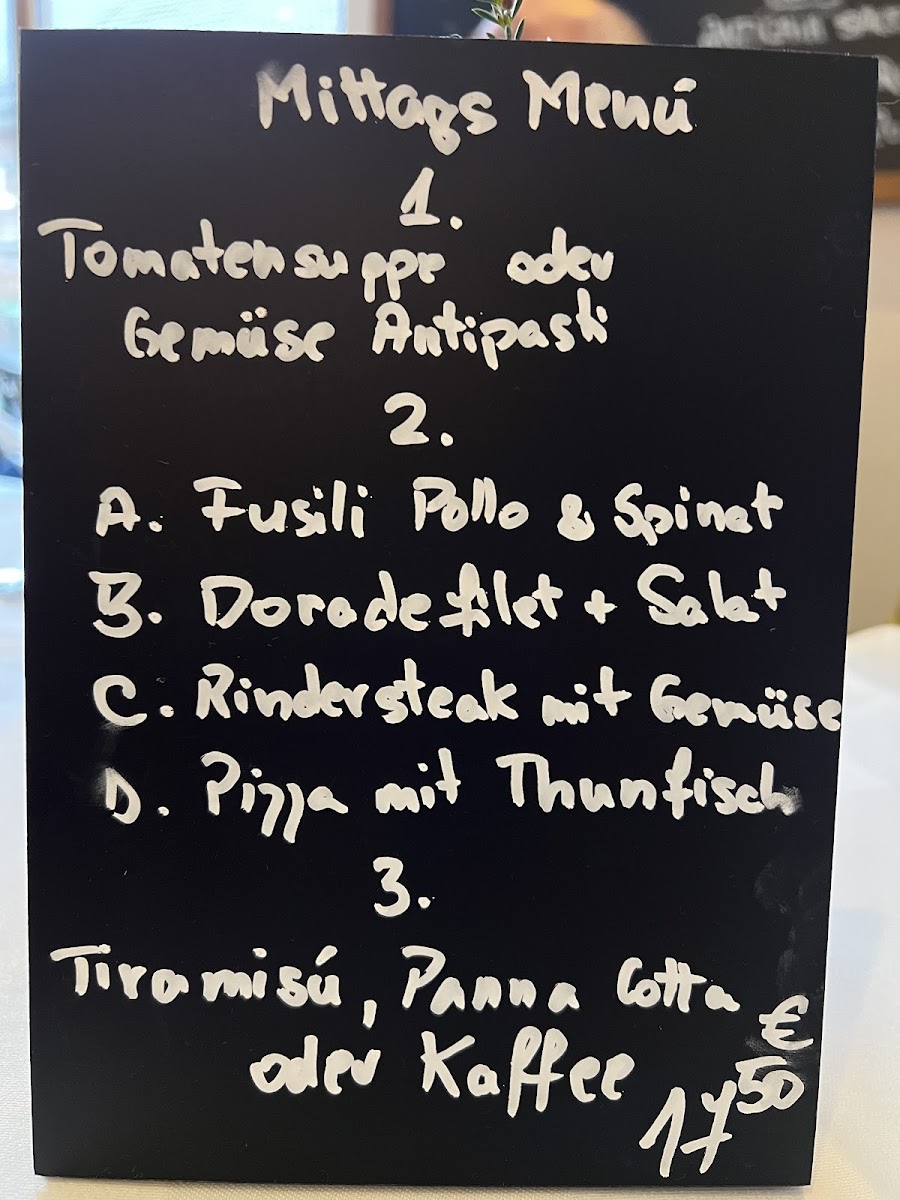 Mittags Menú
1.
Tomatensuppe oder
Gemüse Antipasti
2.
A. Fusili Pollo & Spinat
B. Doradefilet + Salat
C. Rindersteak mit Gemüse
D. Pizza mit Thunfisch
3.
Tiramisú, Panna Cotta
oder Kaffee
€
17 50